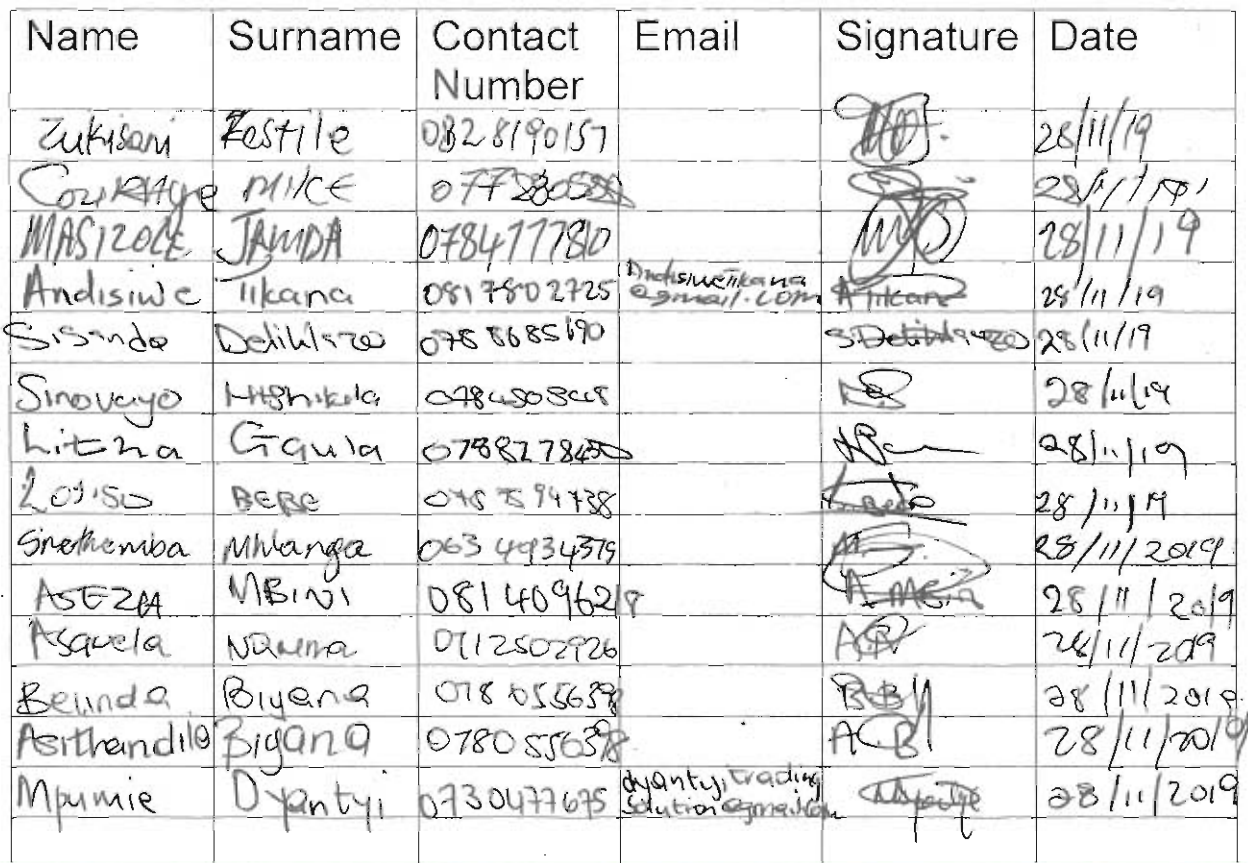 Name Surname Contact Number Email Signature Date
Zukisani Zestile 0828190157 28/11/19
MILCE 28/11/19
MASIZOLE JAMDA 0784777810 28/11/19
Andisiwe Tikana 0817802725 Andisiwetikana@gmail.com A Tikana 28/11/19
Sisanda Deliklazo 0788685190 S.Deliklazo 28/11/19
Sinovuyo 28/11/19
Litha Gqula 28/11/19
BEBE 28/11/19
Sinethemba Mhlanga 0634934379 28/11/2019
ASEZA MBINI 0814096218 28/11/2019
Asavela 0712502926 28/11/2019
Belinda Biyana 0780556398 BB 28/11/2019
Asithandile Biyana 0780556398 ACB 28/11/2019
Mpumie Dyantyi 0730477675 dyantyi.trading solution@gmail.com 28/11/2019